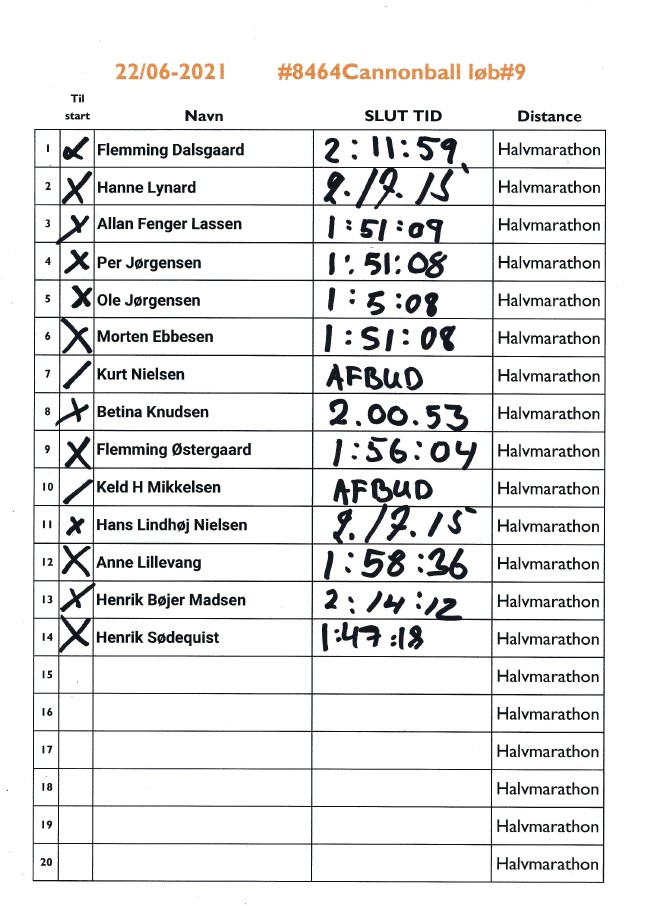 22/06-2021 #8464Cannonball løb#9
Til start Navn SLUT TID Distance
1 X Flemming Dalsgaard 2:11:59 Halvmarathon
2 X Hanne Lynard 2./7.15 Halvmarathon
3 X Allan Fenger Lassen 1:51:09 Halvmarathon
4 X Per Jørgensen 1:51:08 Halvmarathon
5 X Ole Jørgensen 1:5:08 Halvmarathon
6 X Morten Ebbesen 1:51:08 Halvmarathon
7 / Kurt Nielsen AFBUD Halvmarathon
8 X Betina Knudsen 2.00.53 Halvmarathon
9 X Flemming Østergaard 1:56:04 Halvmarathon
10 / Keld H Mikkelsen AFBUD Halvmarathon
11 x Hans Lindhøj Nielsen 2./7.15 Halvmarathon
12 X Anne Lillevang 1:58:36 Halvmarathon
13 X Henrik Bøjer Madsen 2:14:12 Halvmarathon
14 X Henrik Sødequist 1:47:18 Halvmarathon
15 Halvmarathon
16 Halvmarathon
17 Halvmarathon
18 Halvmarathon
19 Halvmarathon
20 Halvmarathon